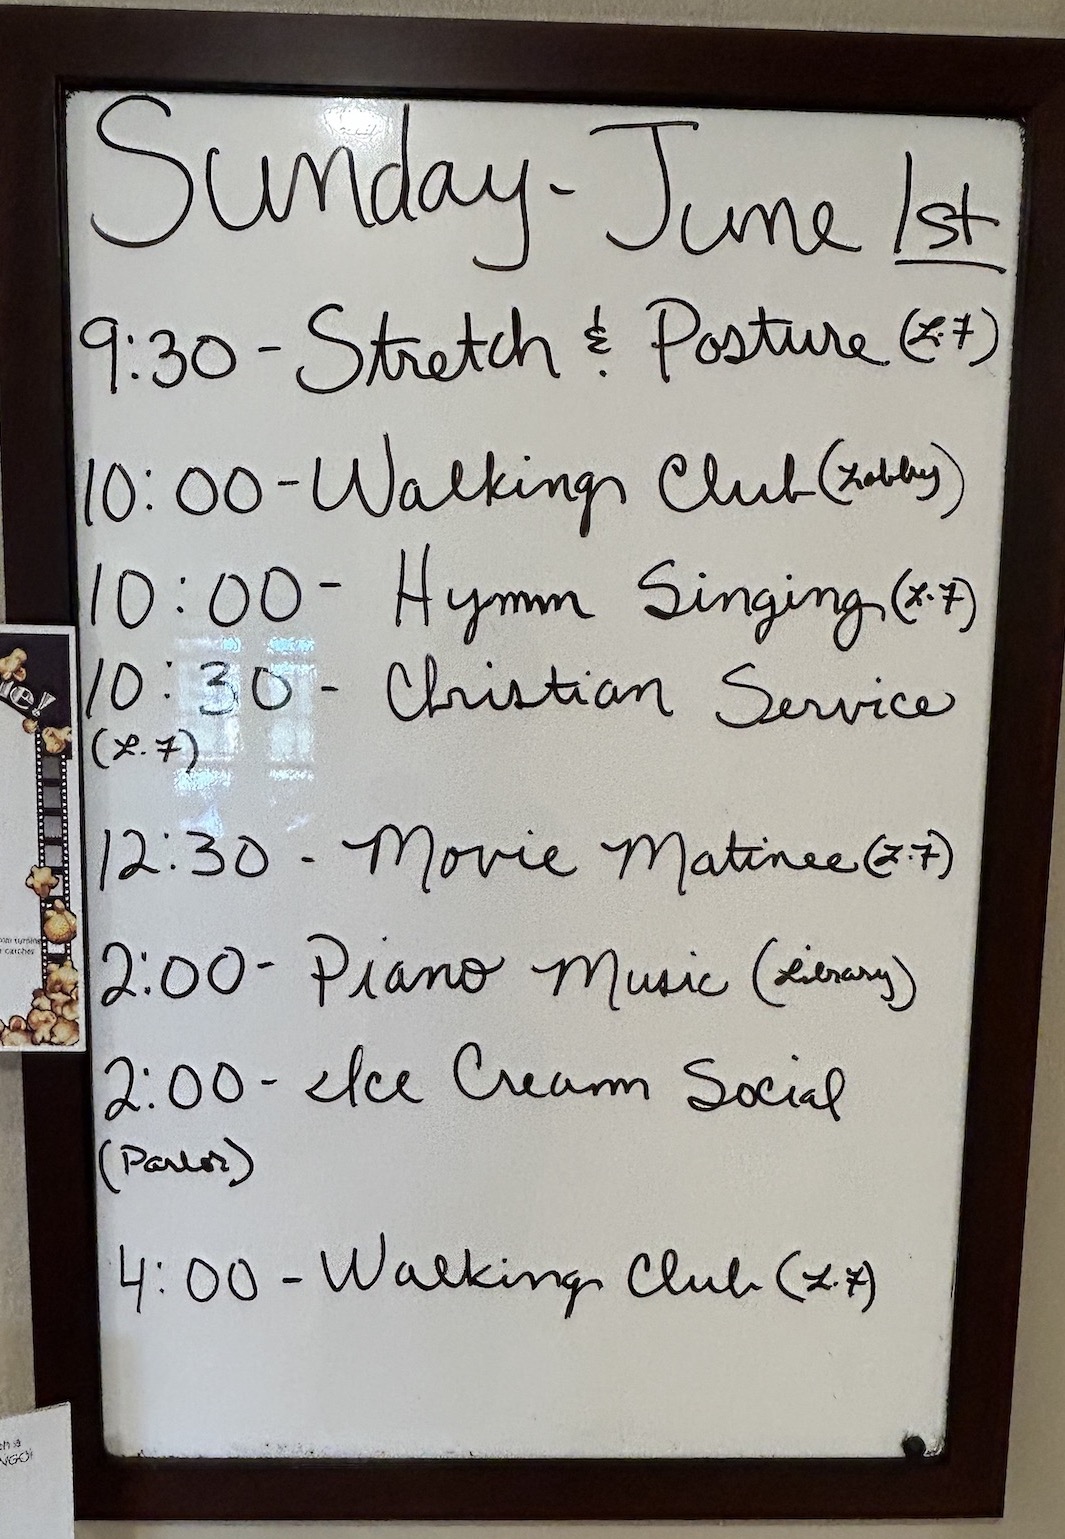 Sunday - June 1st
9:30 - Stretch & Posture (L.7)
10:00 - Walking Club (Lobby)
10:00 - Hymn Singing (L.7)
10:30 - Christian Service
(L.7)
12:30 - Movie Matinee (L.7)
2:00 - Piano Music (Library)
2:00 - Ice Cream Social
(Parlor)
4:00 - Walking Club (L.7)
ie!
turning
catches
NGO!